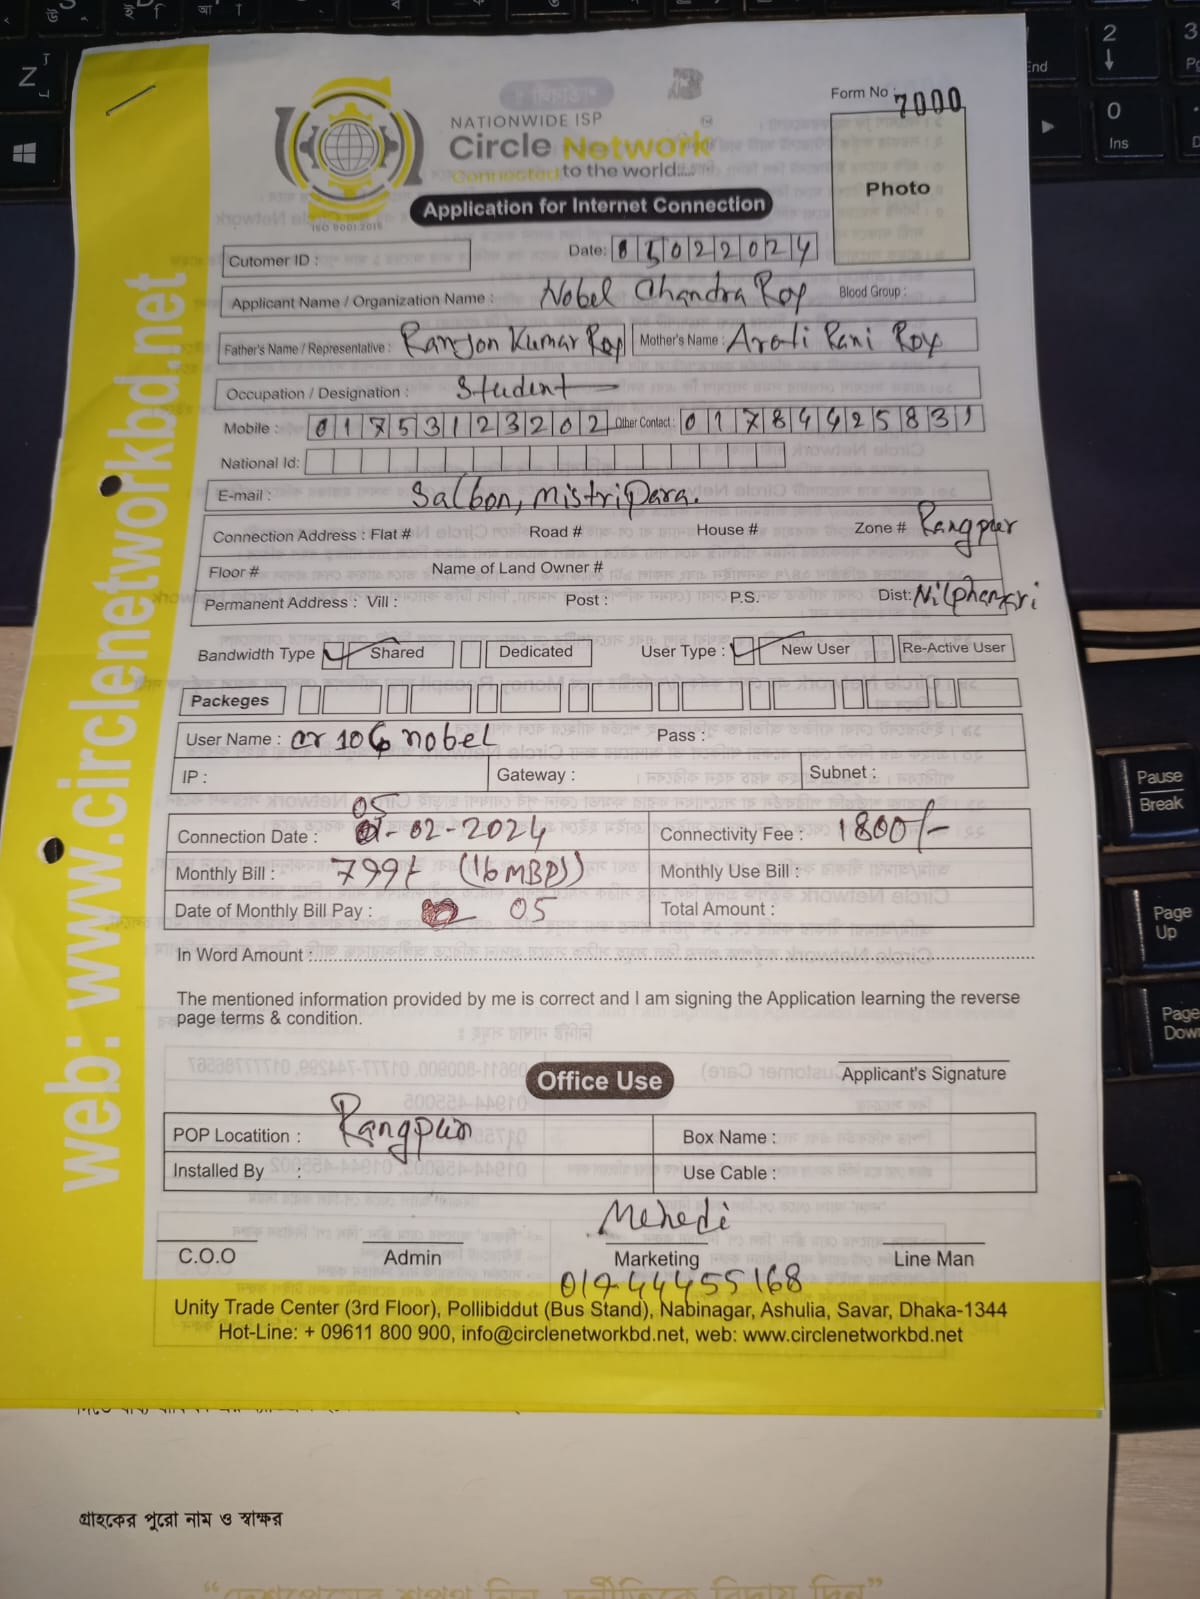 Form No : 7000
NATIONWIDE ISP
Circle Network
Connected to the world...
Photo
ISO 9001:2015
Application for Internet Connection
Cutomer ID :
Date: 05022024
Applicant Name / Organization Name : Nobel Chandra Roy Blood Group :
Father's Name / Representative : Ranjon Kumar Roy Mother's Name : Arati Rani Roy
Occupation / Designation : Student
Mobile : 01753123202 Other Contact : 01784425831
National Id:
E-mail : Salbon, Mistripara.
Connection Address : Flat # Road # House # Zone # Rangpur
Floor # Name of Land Owner #
Permanent Address : Vill : Post : P.S. Dist: Nilphamari
Bandwidth Type Shared Dedicated User Type : New User Re-Active User
Packeges
User Name : nobel Pass :
IP : Gateway : Subnet :
05
Connection Date : -02-2024 Connectivity Fee : 1800/-
Monthly Bill : 799/ (16 MBPS) Monthly Use Bill :
Date of Monthly Bill Pay : 05 Total Amount :
In Word Amount :
The mentioned information provided by me is correct and I am signing the Application learning the reverse
page terms & condition.
Office Use
Applicant's Signature
POP Locatition : Rangpur Box Name :
Installed By : Use Cable :
Mehedi
C.O.O Admin Marketing Line Man
01944455168
Unity Trade Center (3rd Floor), Pollibiddut (Bus Stand), Nabinagar, Ashulia, Savar, Dhaka-1344
Hot-Line: + 09611 800 900, info@circlenetworkbd.net, web: www.circlenetworkbd.net
web: www.circlenetworkbd.net
গ্রাহকের পুরো নাম ও স্বাক্ষর
2
End
0
Ins
Z
Pause
Break
Page
Up
Page
Down